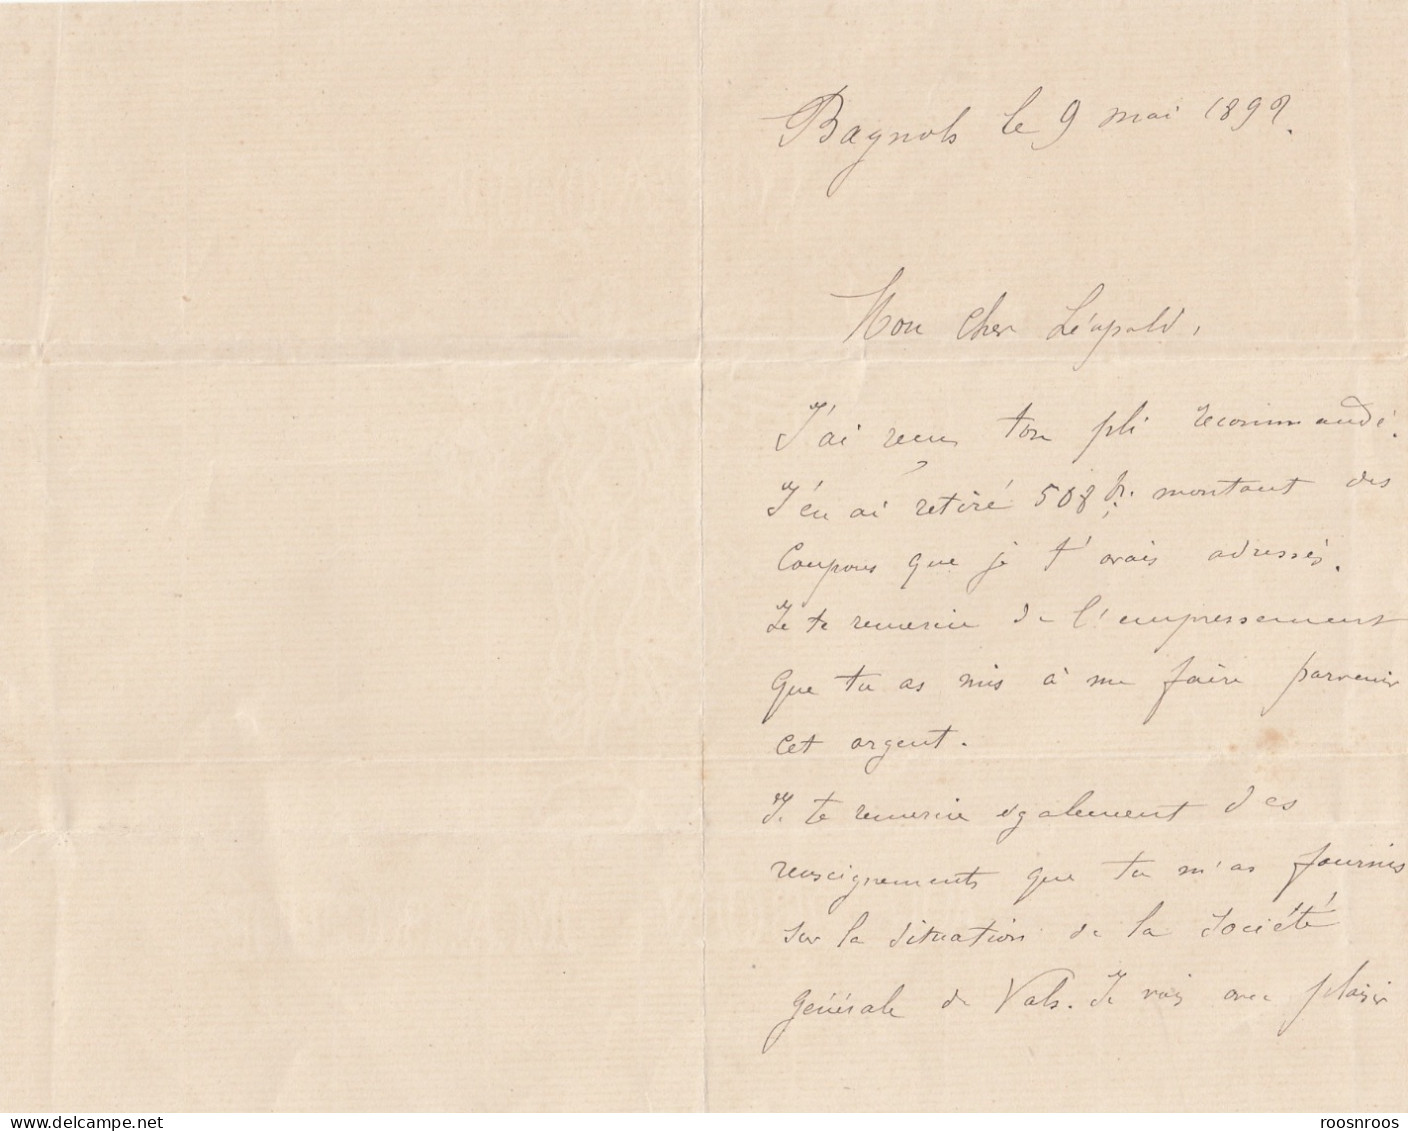 Bagnols le 9 mai 1892.
Mon cher Léopold,
J'ai reçu ton pli recommandé.
J'en ai retiré 508 fr. montant des
Coupons que je t'avais adressés.
Je te remercie de l'empressement
que tu as mis à me faire parvenir
cet argent.
Je te remercie également des
renseignements que tu m'as fournis
sur la situation de la Société
générale de Vals. Je vois avec plaisir
delcampe.net
roosnroos